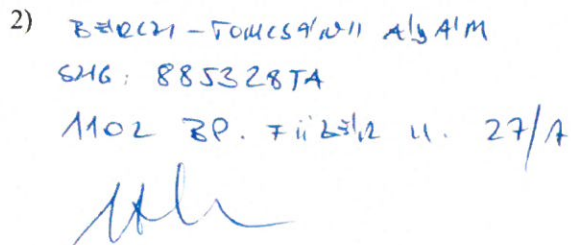 2) BÉRCZI-TOMCSÁNYI ÁDÁM
SZIG: 885328TA
1102 BP. FÜZÉR U. 27/A